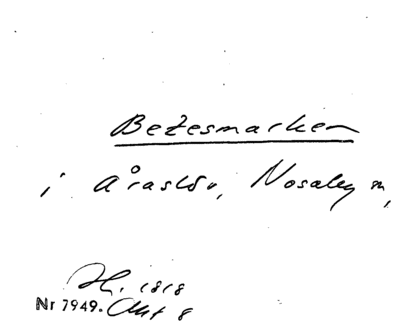 Betesmarken
i Åraslöv, Nosaby m,
Hi. 1818
Nr 7949. Akt 8